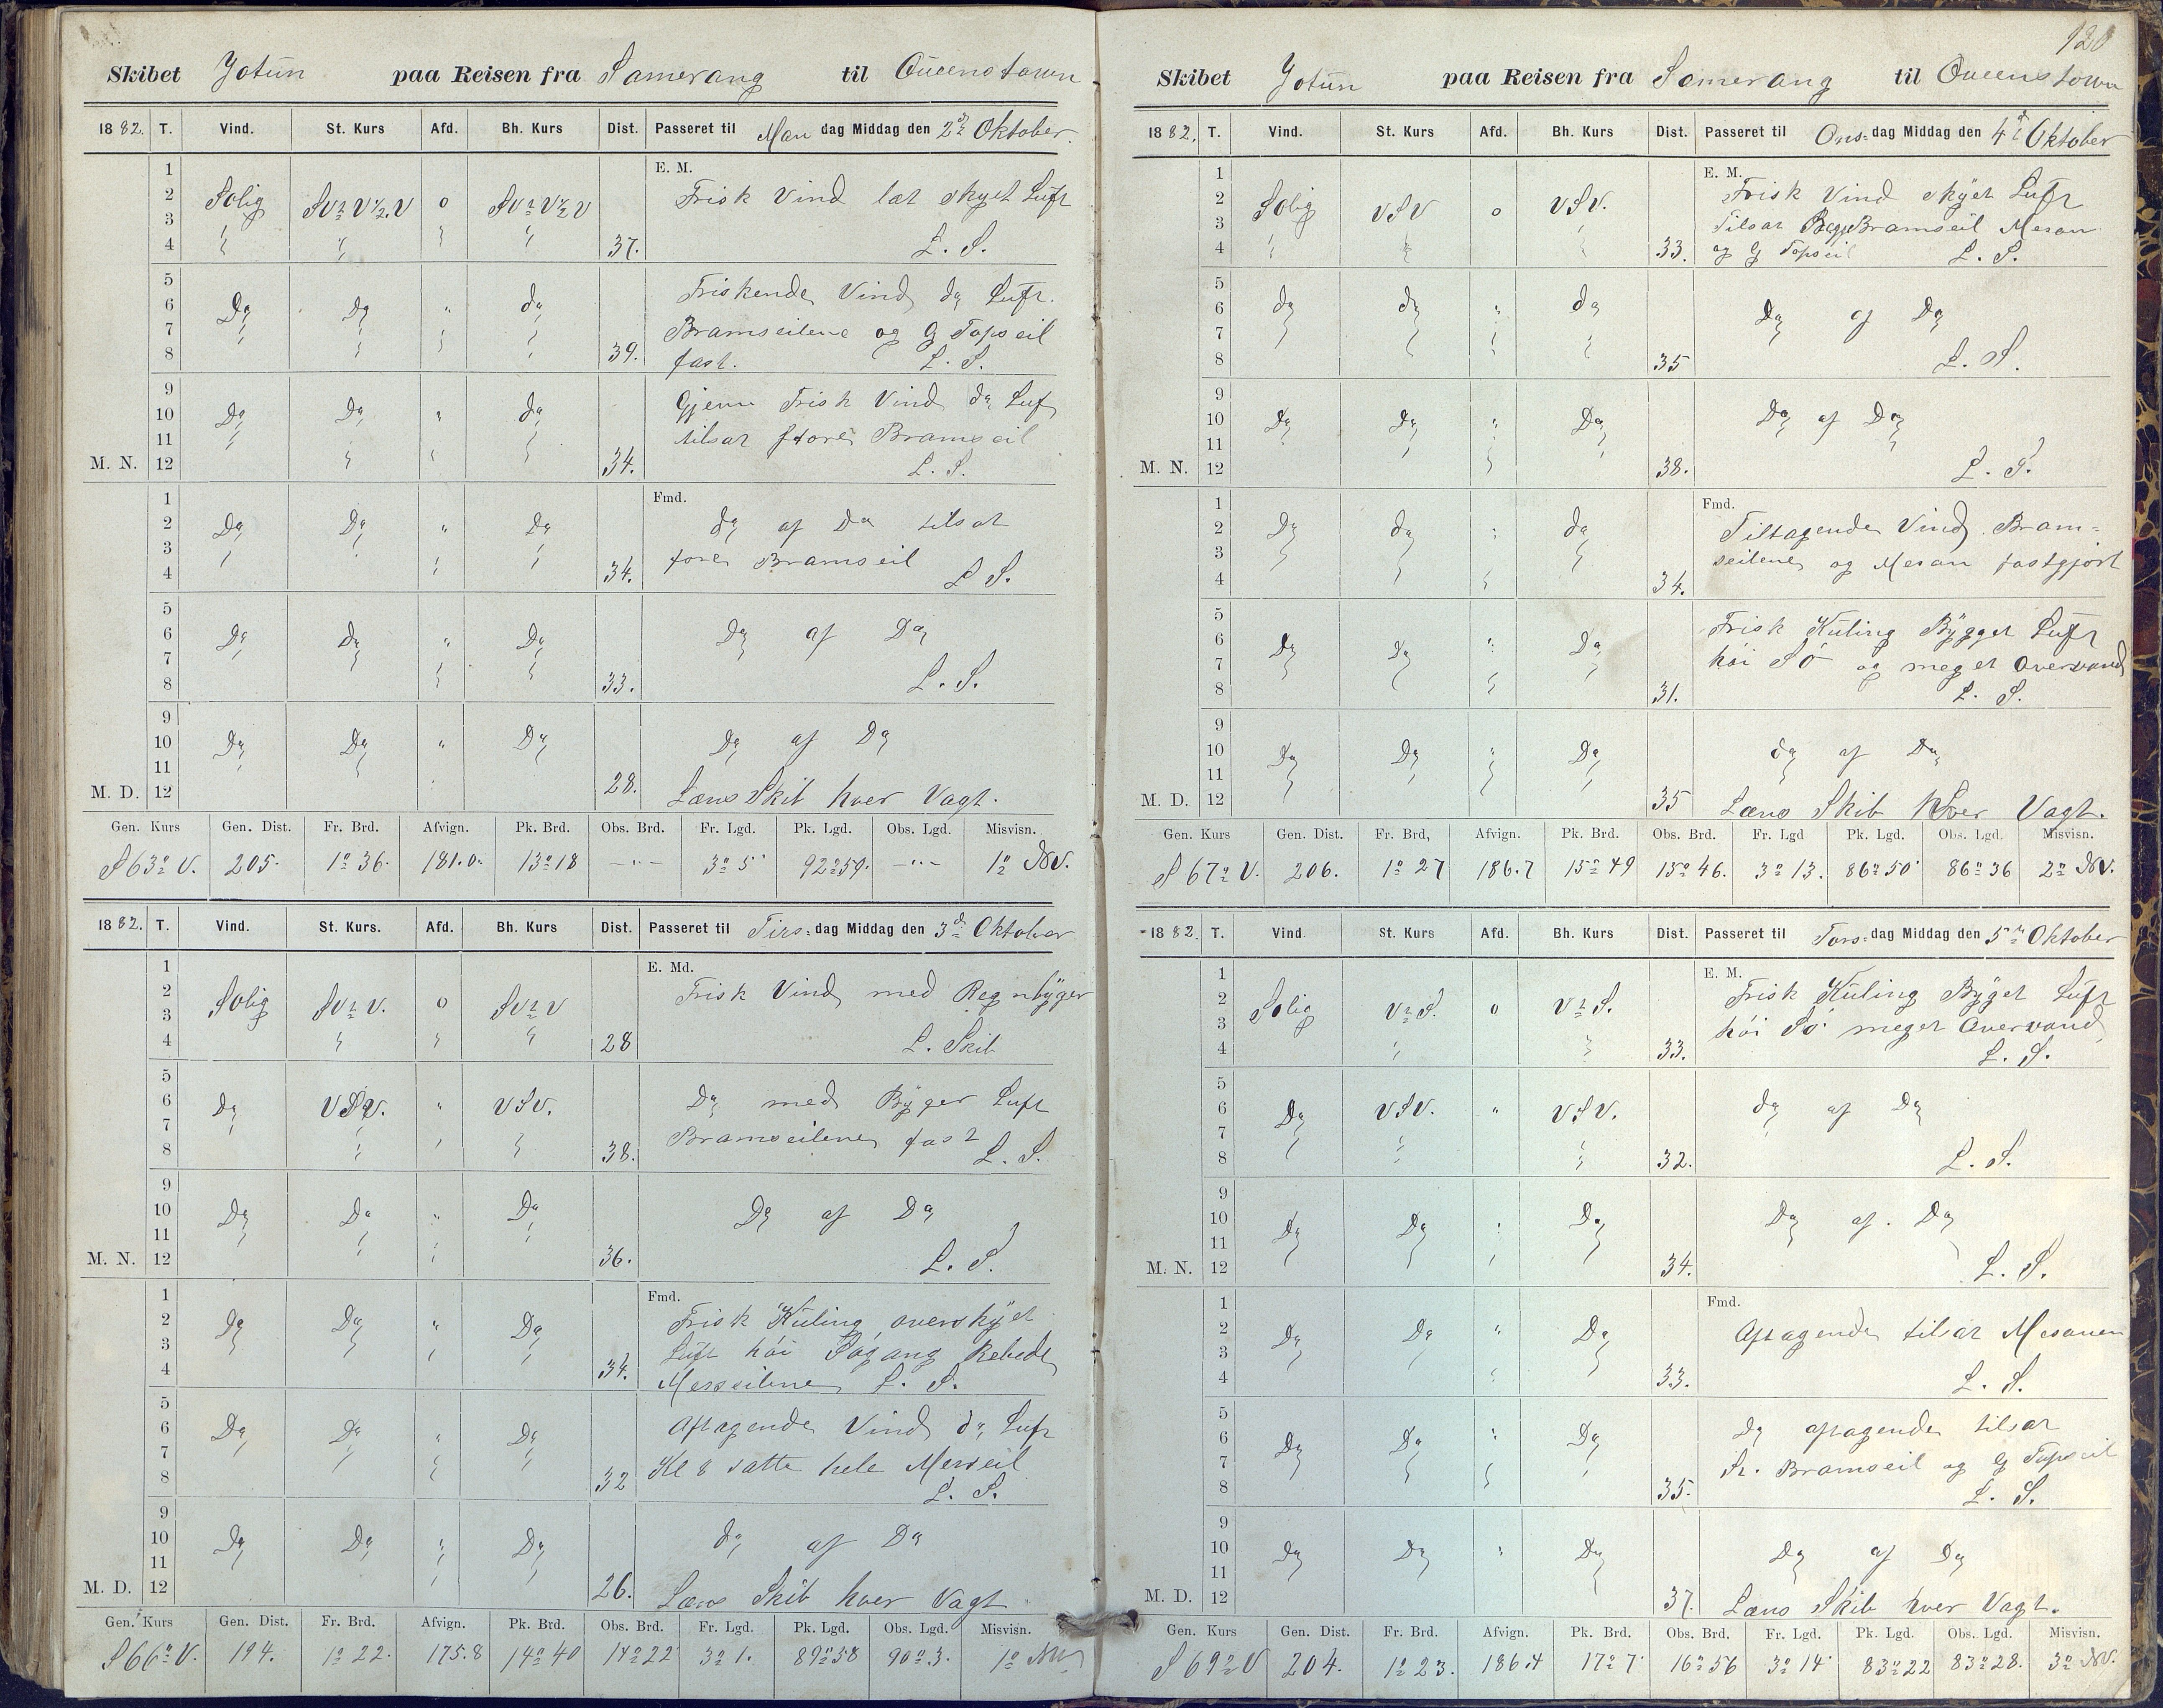 120
Skibet Jotun paa Reisen fra Samerang til Queenstown
1882. T. Vind. St. Kurs Afd. Bh. Kurs Dist. Passeret til Mandag Middag den 2den Oktober.
E. M.
Solig SVzV½V o SVzV½V 37. Frisk Vind let skyet Luft
L. S.
Do Do " do 39. Friskende Vind do Luft.
Bramseilene og G Topseil
fast. L. S.
Do Do " do 34. Gjenn Frisk Vind do Luft
tilsat store Bramseil
L. S.
M. N.
Fmd.
Do Do " Do 34. do af Do tilsat
fore Bramseil L S.
Do Do " Do 33. Do af Do
L. S.
Do Do " Do 28. Do af Do
M. D. Læns Skib hver Vagt.
Gen. Kurs Gen. Dist. Fr. Brd. Afvign. Pk. Brd. Obs. Brd. Fr. Lgd. Pk. Lgd. Obs. Lgd. Misvisn.
S 63° V. 205. 1° 36. 181.0. 13° 18 —"— 3° 5' 92° 59. —"— 1° NV.
1882. T. Vind. St. Kurs. Afd. Bh. Kurs Dist. Passeret til Tirs-dag Middag den 3de Oktober
E. Md.
Solig SVzV. o SVzV 28 Frisk Vind med Regnbyger
L. Skib
Do VSV. " VSV. 38. Do med Byger Luft
Bramseilene fast L. S.
Do Do " Do 36. Do af Do
M. N. L. S.
Fmd.
Do Do " Do 34. Frisk Kuling overskyet
Luft høi Søgang Rebede
Merseilene L. S.
Do Do " Do 32 Aftagende Vind do Luft
Kl 8 satte hele Merseil
L. S.
Do Do " Do 26. do af Do
M. D. Læns Skib hver Vagt
Gen. Kurs Gen. Dist. Fr. Brd. Afvign. Pk. Brd. Obs. Brd. Fr. Lgd. Pk. Lgd. Obs. Lgd. Misvisn.
S 66° V. 194. 1° 22. 175.8 14° 40 14° 22 3° 1. 89° 58 90° 3. 1° NV
Skibet Jotun paa Reisen fra Samerang til Queenstown
1882. T. Vind. St. Kurs Afd. Bh. Kurs Dist. Passeret til Ons-dag Middag den 4de Oktober
E. M.
Solig VSV o VSV. 33. Frisk Vind skyet Luft
Tilsat Begge Bramseil Mesan
og G Topseil L. S.
do do " do 35 Do af Do
L. S.
Do Do " Do 38. Do af Do
M. N. L. S.
Fmd.
Do do " do 34. Tiltagende Vind Bram-
seilene og Mesan fastgjort
Do Do " Do 31. Frisk Kuling Bygget Luft
høi Sø og meget Overvand
L. S.
Do Do " Do 35 do af Do
M. D. Læns Skib hver Vagt.
Gen. Kurs Gen. Dist. Fr. Brd, Afvign. Pk. Brd. Obs. Brd. Fr. Lgd Pk. Lgd. Obs. Lgd. Misvisn.
S 67° V. 206. 1° 27 186.7 15° 49 15° 46. 3° 13. 86° 50' 86° 36 2° NV.
1882. T. Vind St. Kurs Afd. Bh. Kurs Dist. Passeret til Tors-dag Middag den 5te Oktober
E. M.
Solig VzS. o VzS. 33. Frisk Kuling Byget Luft
høi Sø meget Overvand
L. S.
Do VSV. " VSV. 32. do af Do
L. S.
Do Do " Do 34. Do af Do
M. N. L. S.
Fmd.
Do Do " Do 33. Aftagende tilsat Mesanen
L. S.
Do Do " Do 35. Do aftagende tilsat
St. Bramseil og G Topseil
L. S.
Do Do " Do 37. Do af Do
M. D. Læns Skib hver Vagt.
Gen. Kurs Gen. Dist. Fr. Brd. Afvign. Pk. Brd. Obs. Brd. Fr. Lgd. Pk. Lgd. Obs. Lgd. Misvisn.
S 69° V 204. 1° 23. 186.4 17° 7' 16° 56 3° 14' 83° 22 83° 28. 3° NV.